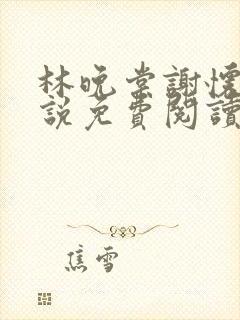 林晚棠謝懷
說免費閱讀
焦雪